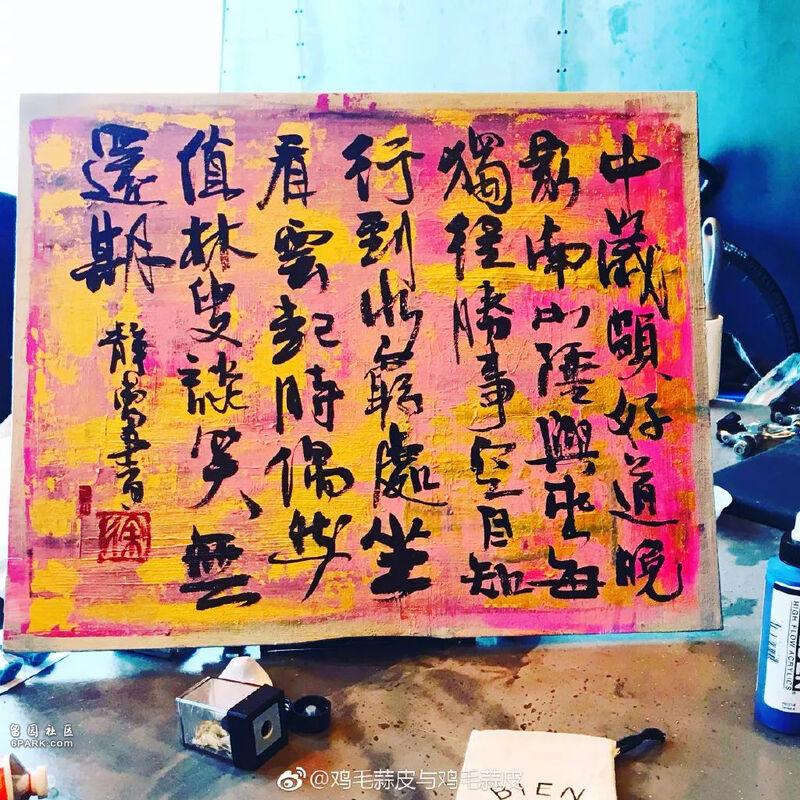 中歲頗好道晚
家南山陲興来每
獨往勝事空自知
行到水窮處坐
看雲起時偶然
值林叟談笑無
還期
徐
HIGH FLOW ACRYLICS
BIEN
留园社区
6PARK.com
@鸡毛蒜皮与鸡毛蒜皮